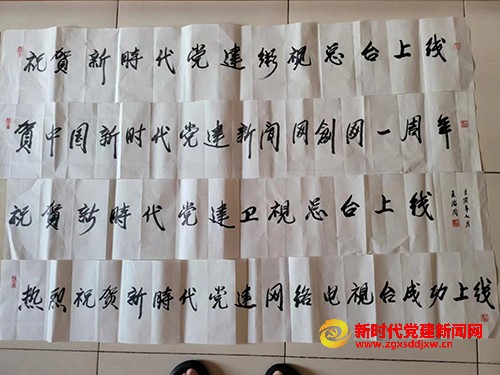 祝贺新時代党建衛視总台上线
贺中国新时代党建新闻网創网一周年
祝贺新時代党建卫視总台上线
热烈祝贺新時代党建网络电视台成功上线
新时代党建新闻网
www.zgxsddjxw.cn